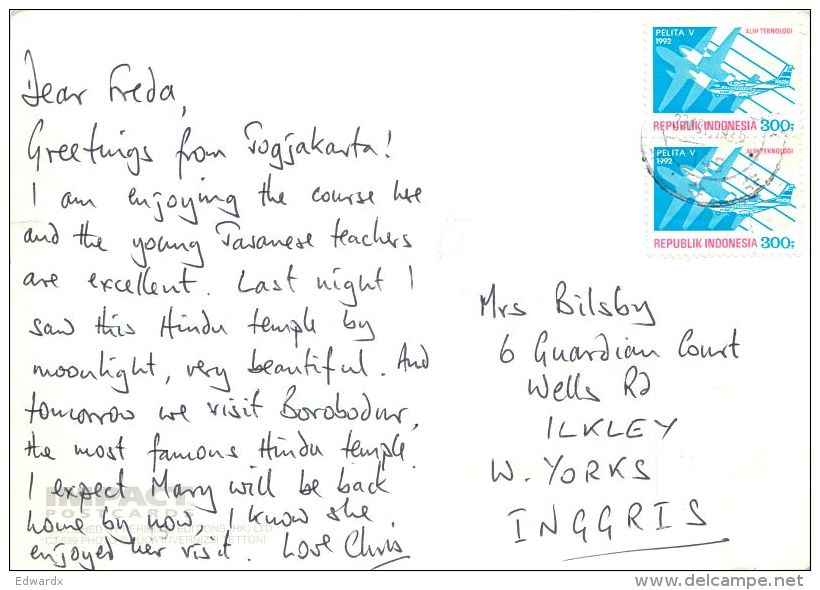 Dear Freda,
Greetings from Jogjakarta!
I am enjoying the course here
and the young Javanese teachers
are excellent. Last night I
saw this Hindu temple by
moonlight, very beautiful. And
tomorrow we visit Borobodur,
the most famous Hindu temple.
I expect Mary will be back
home by now, I know she
enjoyed her visit. Love Chris
IMPACT
POSTCARDS
EDITIONS (HK) LTD
INVERNIZZI TETTONI
PELITA V
1992
ALIH TEKNOLOGI
REPUBLIK INDONESIA 300;
PELITA V
1992
ALIH TEKNOLOGI
REPUBLIK INDONESIA 300;
Mrs Bilsby
6 Guardian Court
Wells Rd
ILKLEY
W. YORKS
INGGRIS
Edwardx
www.delcampe.net